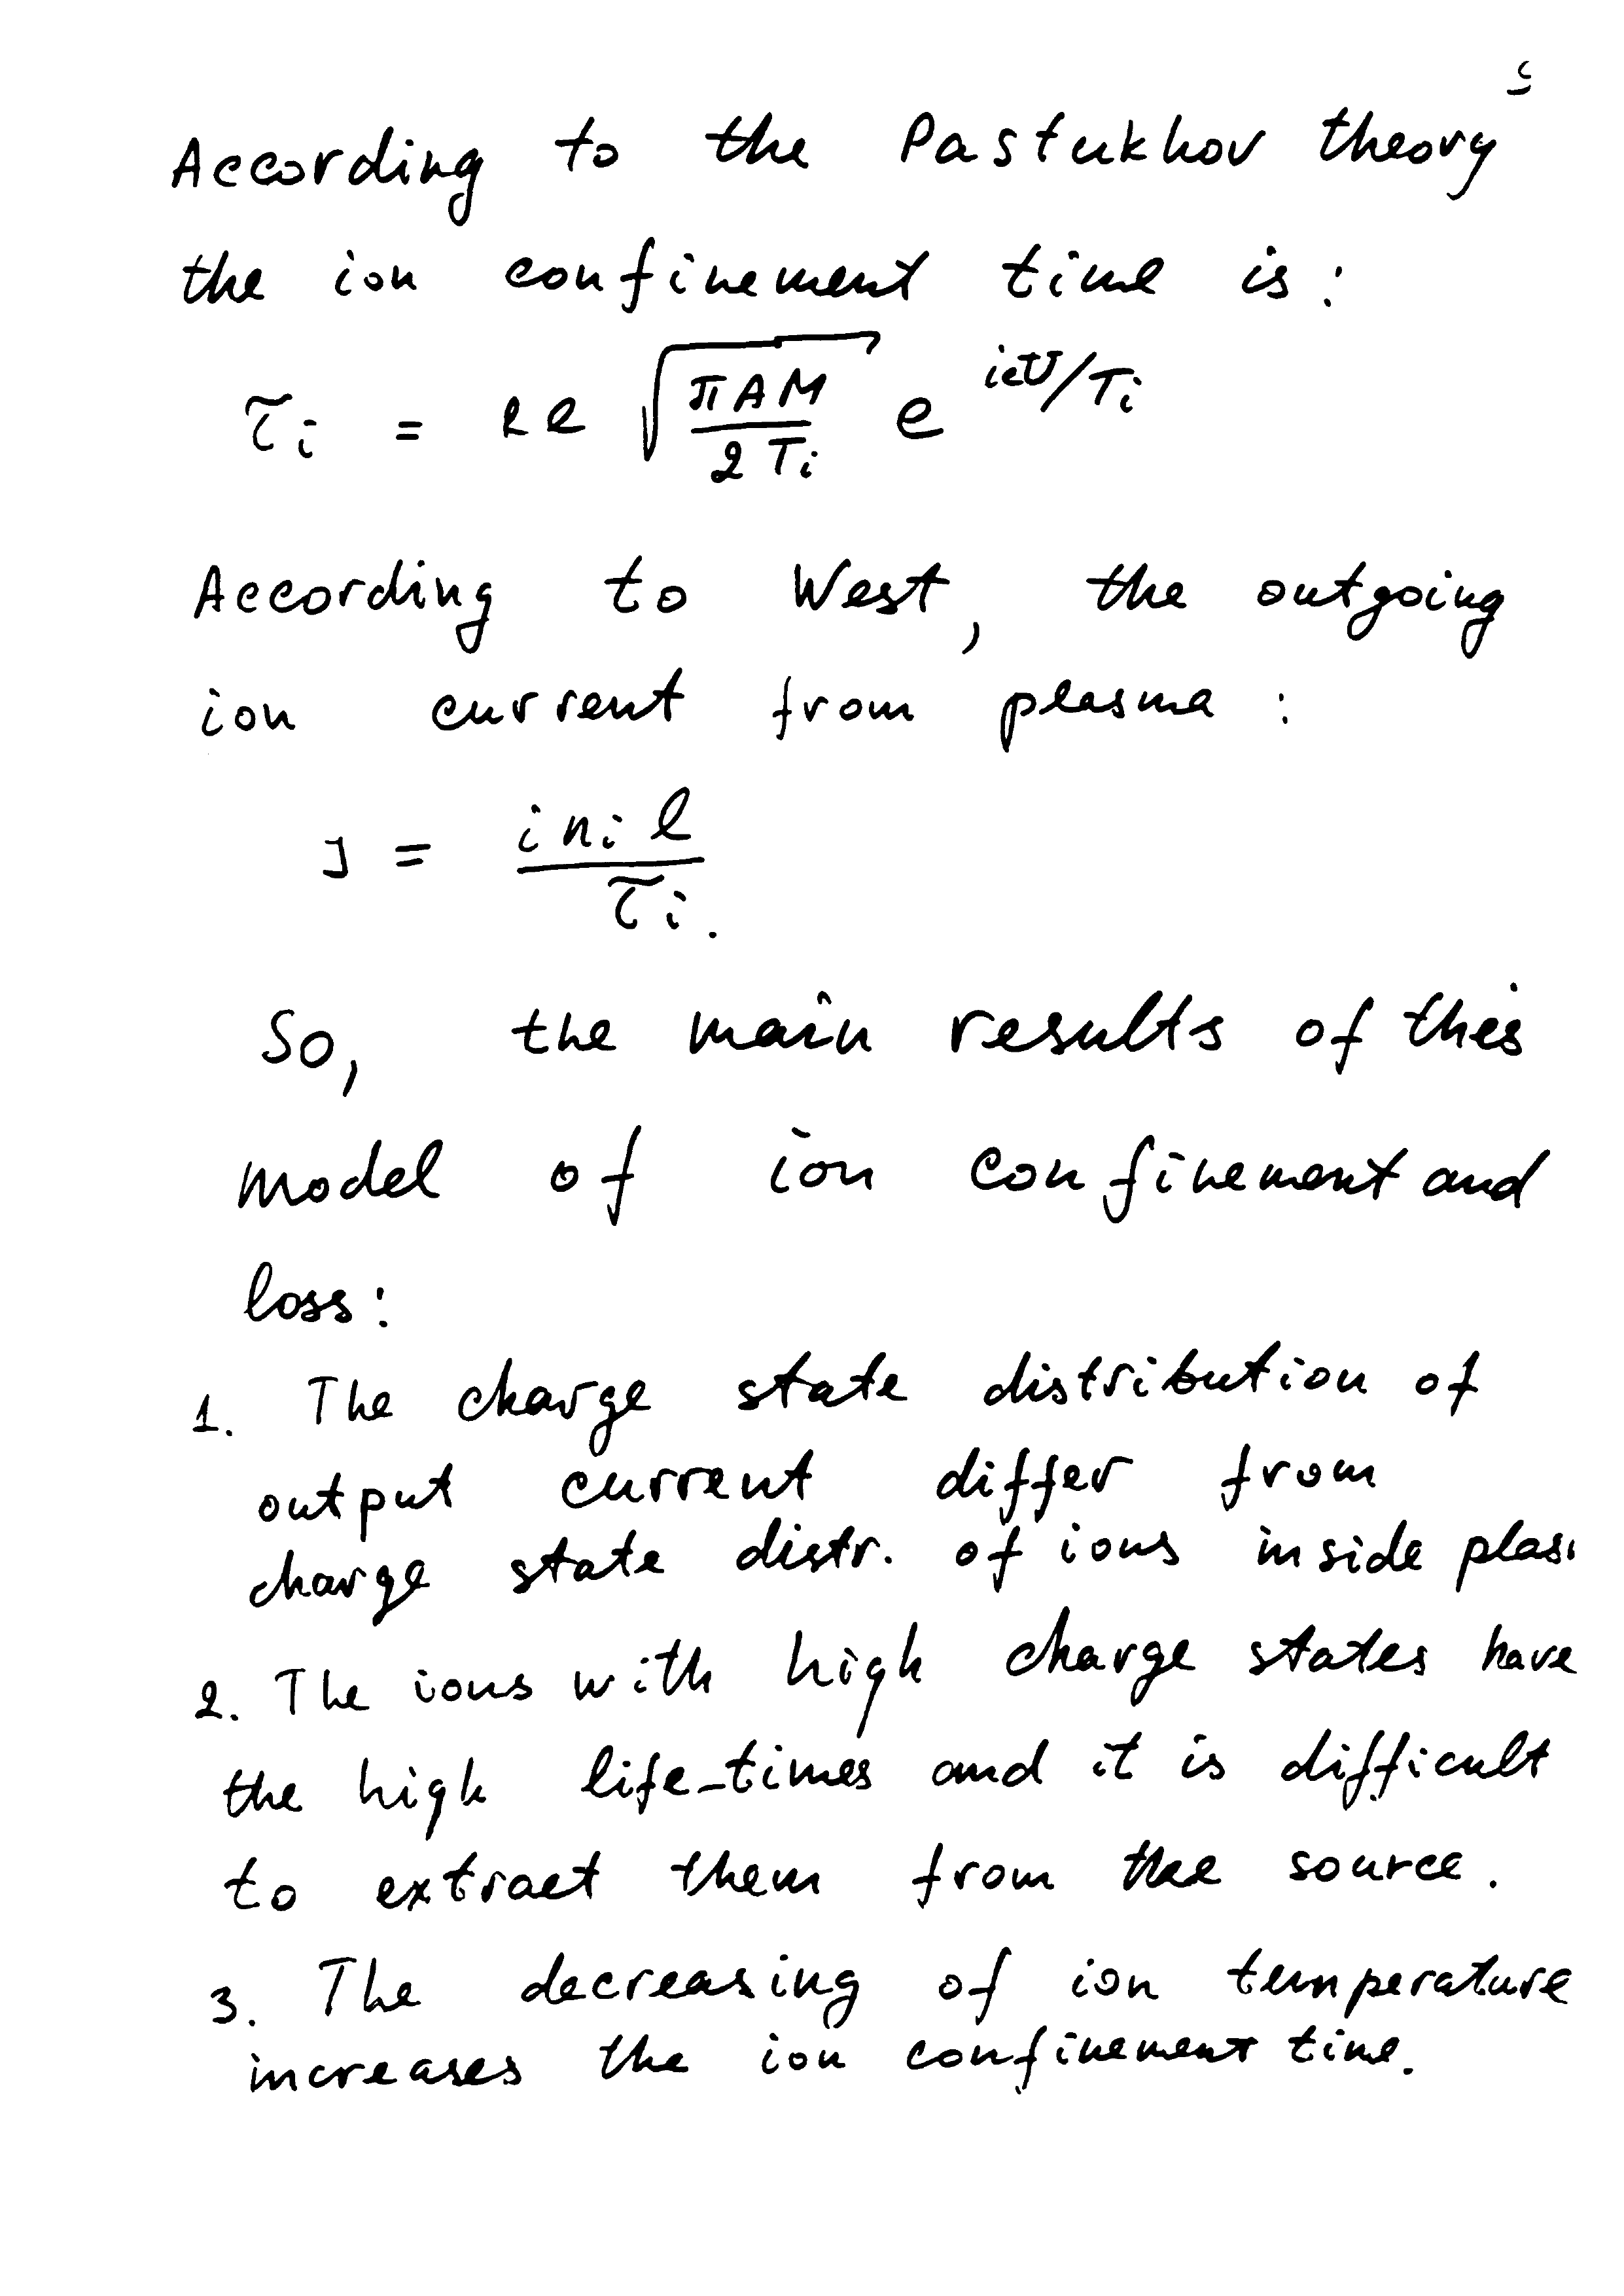 According to the Pastukhov theory
the ion confinement time is:
τi = Rl √(πAM / 2Ti) e^(ieU/Ti)
According to West, the outgoing
ion current from plasma:
J = i ni l / τi.
So, the main results of this
model of ion confinement and
loss:
1. The charge state distribution of
output current differ from
charge state distr. of ions inside plas
2. The ions with high charge states have
the high life-times and it is difficult
to extract them from the source.
3. The decreasing of ion temperature
increases the ion confinement time.